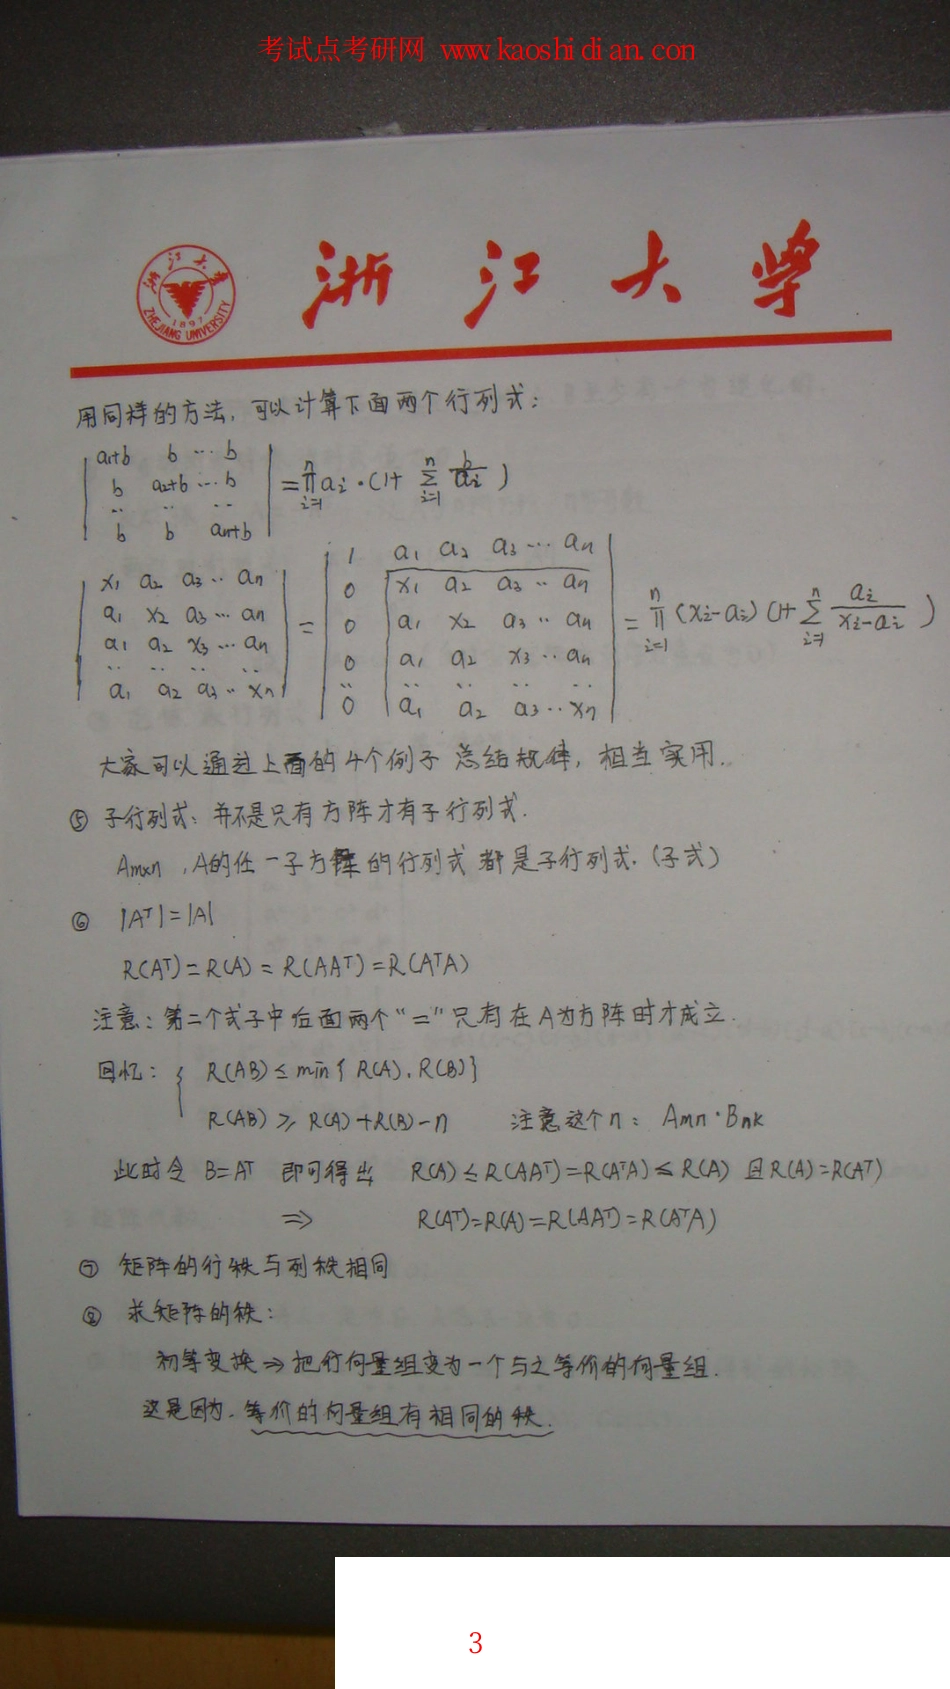 考试点考研网 www.kaoshidian.com
浙江大学
浙江大学 ZHEJIANG UNIVERSITY 1897
用同样的方法，可以计算下面两个行列式：
| a₁+b b ⋯ b |
| b a₂+b ⋯ b | = ∏ᵢ₌₁ⁿ aᵢ · (1+ ∑ᵢ₌₁ⁿ b/aᵢ )
| ‥ ‥ ‥ |
| b b aₙ+b |
| x₁ a₂ a₃ ‥ aₙ | = | 1 a₁ a₂ a₃ ⋯ aₙ |
| a₁ x₂ a₃ ⋯ aₙ | | 0 x₁ a₂ a₃ ‥ aₙ |
| a₁ a₂ x₃ ⋯ aₙ | | 0 a₁ x₂ a₃ ‥ aₙ | = ∏ᵢ₌₁ⁿ (xᵢ-aᵢ) (1+ ∑ᵢ₌₁ⁿ aᵢ/(xᵢ-aᵢ) )
| ‥ ‥ ‥ ‥ | | 0 a₁ a₂ x₃ ‥ aₙ |
| a₁ a₂ a₃ ‥ xₙ | | ‥ ‥ ‥ ‥ ‥ |
| 0 a₁ a₂ a₃ ‥ xₙ |
大家可以通过上面的4个例子总结规律，相当实用.
⑤ 子行列式：并不是只有方阵才有子行列式.
Am×n，A的任一子方阵的行列式都是子行列式.(子式)
⑥ |Aᵀ|=|A|
R(Aᵀ)=R(A)=R(AAᵀ)=R(AᵀA)
注意：第二个式子中后面两个“=”只有在A为方阵时才成立.
回忆：{ R(AB)≤min{R(A).R(B)}
R(AB)≥R(A)+R(B)-n 注意这个n：Amn·Bnk
此时令 B=Aᵀ 即可得出 R(A)≤R(AAᵀ)=R(AᵀA)≤R(A) 且R(A)=R(Aᵀ)
⇒ R(Aᵀ)=R(A)=R(AAᵀ)=R(AᵀA)
⑦ 矩阵的行秩与列秩相同
⑧ 求矩阵的秩：
初等变换⇒把行向量组变为一个与之等价的向量组.
这是因为.等价的向量组有相同的秩.
3